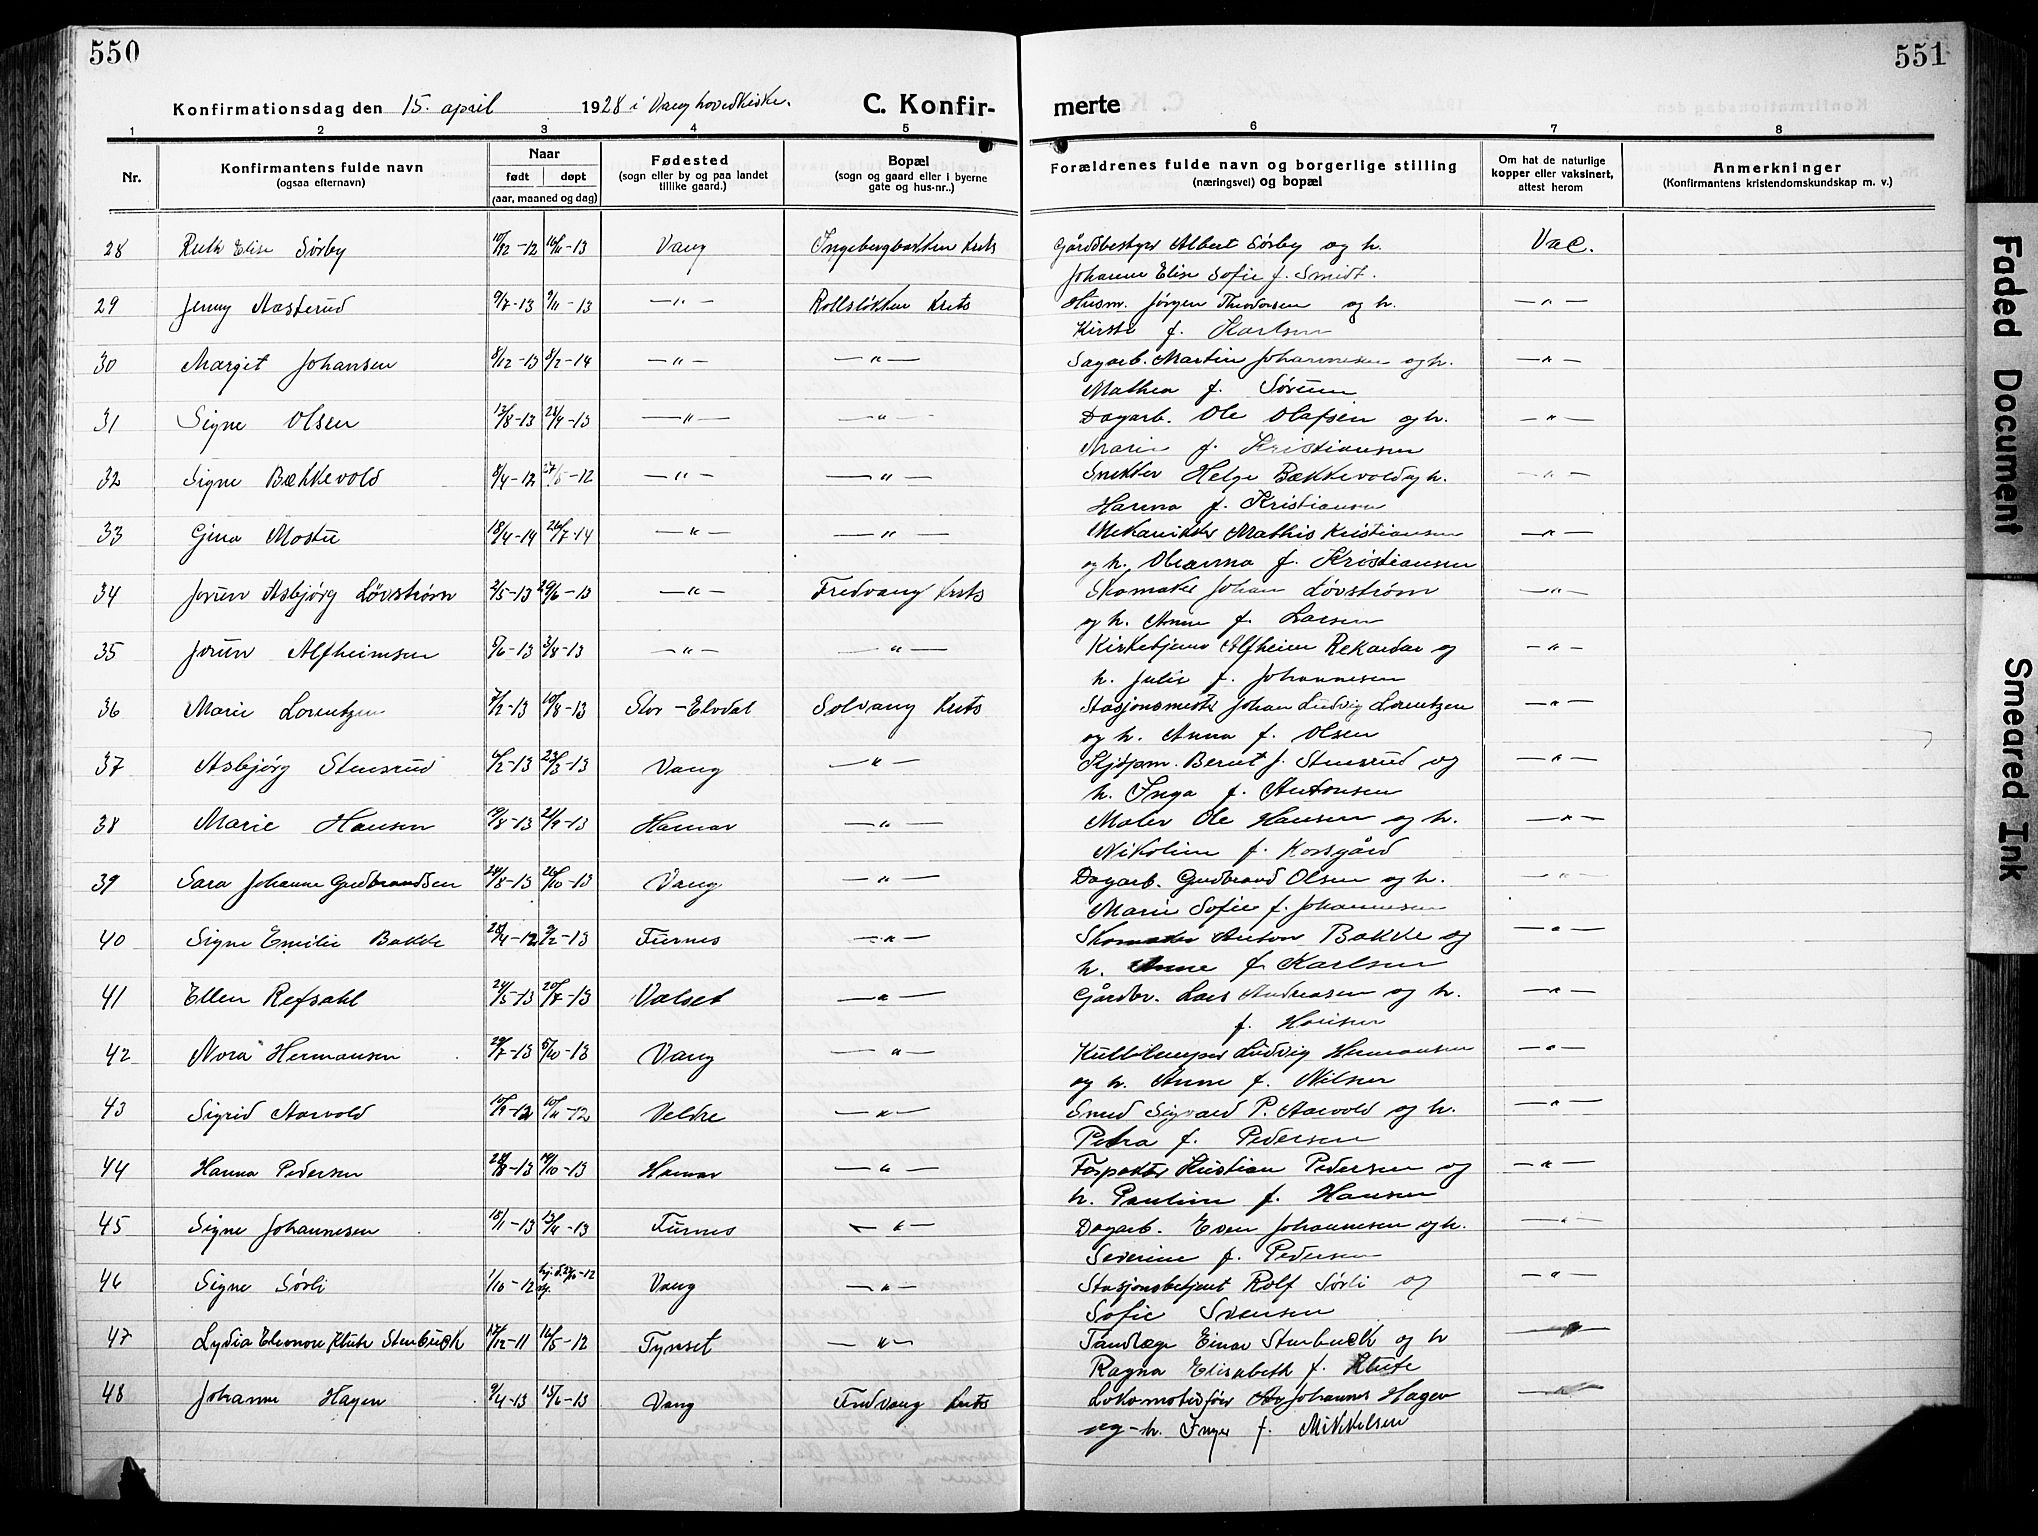 550
551
Konfirmationsdag den 15. april 1928 i Vang hovedkirke.
C. Konfir-
merte
1 2 3 4 5 6 7 8
Nr.
Konfirmantens fulde navn
(ogsaa efternavn)
Naar
født døpt
(aar, maaned og dag)
Fødested
(sogn eller by og paa landet
tillike gaard.)
Bopæl
(sogn og gaard eller i byerne
gate og hus-nr..)
Forældrenes fulde navn og borgerlige stilling
(næringsvei) og bopæl
Om hat de naturlige
kopper eller vaksinert,
attest herom
Anmerkninger
(Konfirmantens kristendomskundskap m. v.)
28 Ruth Elise Sørby 10/12-12 16/11-13 Vang Ingebergbakken krets Gårdbestyrer Albert Sørby og h. Vac.
Johanne Elise Sofie f. Smidt.
29 Jenny Aasterud 9/7-13 9/11-13 —"— Rollsløkken krets Husm. Jørgen Theodorsen og h. —"—
Kirsti f. Karlsen
30 Margit Johansen 8/12-13 8/2-14 —"— —"— Sagarb. Martin Johannesen og h. —"—
Mathea f. Sørum
31 Signe Olsen 13/8-13 28/9-13 —"— —"— Dagarb. Ole Olafsen og h. —"—
Marie f. Kristiansen
32 Signe Bækkevold 8/4-12 —"— —"— Snekker Helge Bækkevold og h. —"—
Hanna f. Kristiansen
33 Gina Mostu 18/4-14 26/7-14 —"— —"— Mekaniker Mathis Kristiansen —"—
og h. Oleanna f. Kristiansen
34 Jorun Asbjørg Løvstrøm 2/5-13 29/6-13 —"— Fredvang krets Skomaker Johan Løvstrøm —"—
og h. Anne f. Larsen
35 Jorun Alfheimsen 5/6-13 3/8-13 —"— —"— Kirketjener Alfheim Rekardar og —"—
h. Julie f. Johannesen
36 Marie Lorentzen 7/2-13 10/8-13 Stor-Elvdal Solvang krets Stasjonsmester Johan Ludvig Lorentzen —"—
og h. Anna f. Olsen
37 Asbjørg Stensrud 6/2-13 23/3-13 Vang —"— Bernt J. Stensrud og —"—
h. Inga f. Antonsen
38 Marie Hansen 19/8-13 21/9-13 Hamar —"— Maler Ole Hansen og h. —"—
Nikoline f. Korsgård
39 Sara Johanne Gudbrandsen 24/8-13 26/10-13 Vang —"— Dagarb. Gudbrand Olsen og h. —"—
Marie Sofie f. Johannesen
40 Signe Emilie Bakke 28/4-12 9/2-13 Furnes —"— Skomaker Anton Bakke og —"—
h. Anne f. Karlsen
41 Ellen Refsahl 24/5-13 20/7-13 Valset —"— Gårdbr. Lars Andreasen og h. —"—
f. Hansen
42 Nora Hermansen 29/7-13 5/10-13 Vang —"— Kullemper Ludvig Hermansen —"—
og h. Anne f. Nilsen
43 Sigrid Aarvold 10/9-12 10/11-12 Veldre —"— Smed Sigvard P. Aarvold og h. —"—
Petra f. Pedersen
44 Hanna Pedersen 28/8-13 19/10-13 Hamar —"— Forpakter Kristian Pedersen og —"—
h. Pauline f. Hansen
45 Signe Johannesen 15/1-13 13/4-13 Furnes —"— Dagarb. Even Johannesen og h. —"—
Severine f. Pedersen
46 Signe Sørli 1/10-12 Vang —"— Stasjonsbetjent Rolf Sørli og —"—
Sofie Svensen
47 Lydia Eleonore Klute Stenbuck 17/12-11 16/5-12 Tynset —"— Tandlæge Einar Stenbuck og h —"—
Ragna Elisabeth f. Klute
48 Johanne Hagen 9/4-13 15/6-13 Vang Fredvang krets Lokomotivfører Johannes Hagen —"—
og h. Inger f. Mikkelsen
Faded Document
Smeared Ink